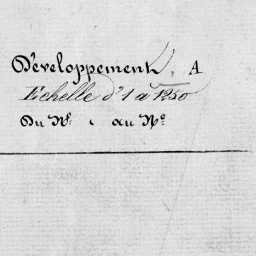 Développement, A
Echelle d'1 à 1250
Du Nº. au Nº